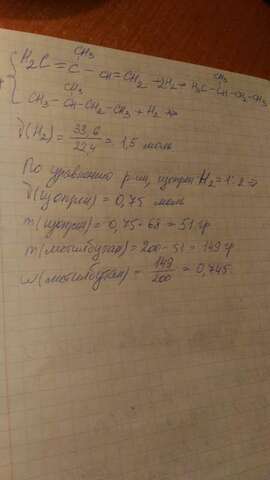 CH₃
H₂C = C – CH = CH₂ + 2H₂ → H₃C – CH – CH₂ – CH₃
CH₃
CH₃
CH₃ – CH – CH₂ – CH₃ + H₂ ↛
ϑ(H₂) = 33,6 / 22,4 = 1,5 моль
По уравнению р-ии, изопрен H₂ = 1:2 ⇒
ϑ(изопрен) = 0,75 моль
m(изопрен) = 0,75 · 68 = 51 гр
m(метилбутан) = 200 - 51 = 149 гр
ω(метилбутан) = 149 / 200 = 0,745